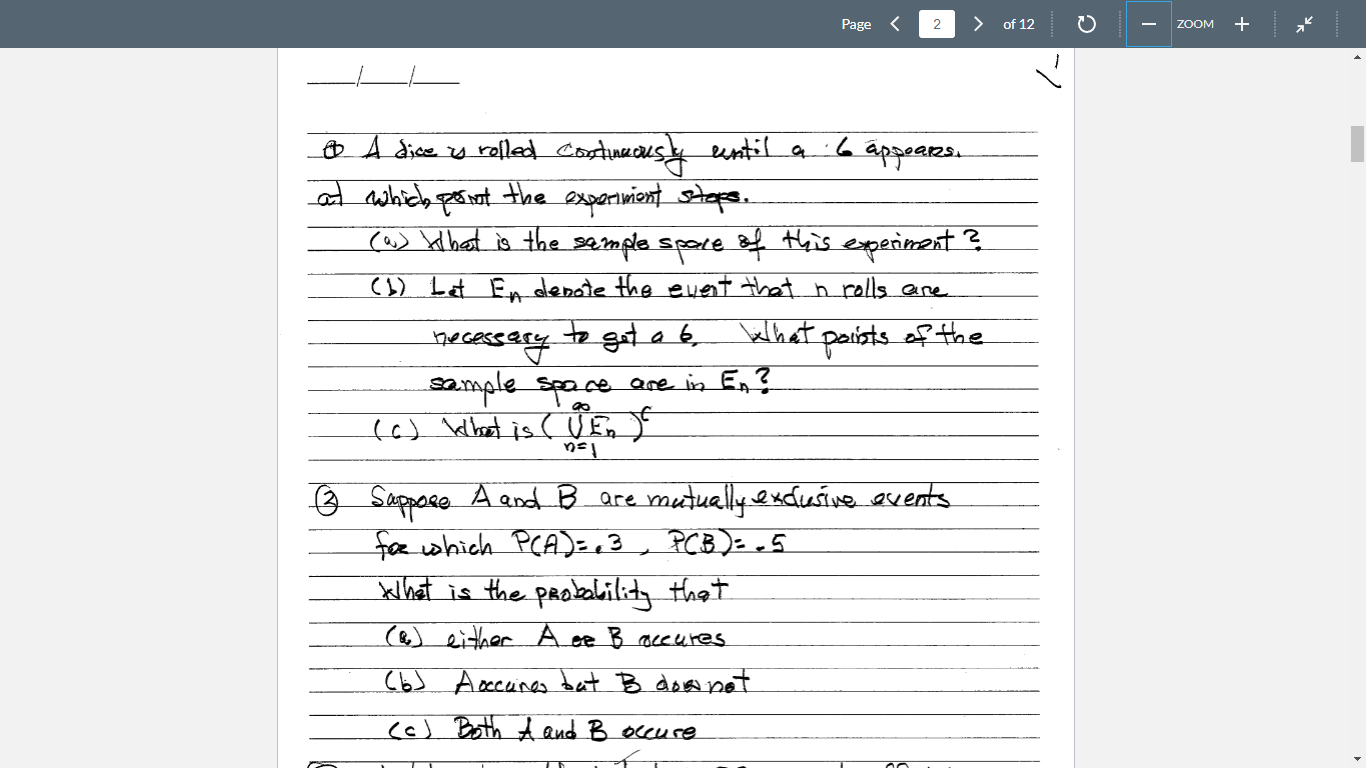 Page 2 of 12 ZOOM
___/___/___
① A dice is rolled continuously until a 6 appears.
at which point the experiment stops.
(a) What is the sample space of this experiment?
(b) Let En denote the event that n rolls are
necessary to get a 6. What points of the
sample space are in En?
(c) What is (∞⋃n=1 En)ᶜ
② Suppose A and B are mutually exclusive events
for which P(A)=.3, P(B)=.5
What is the probability that
(a) either A or B occures
(b) A occures but B does not
(c) Both A and B occure